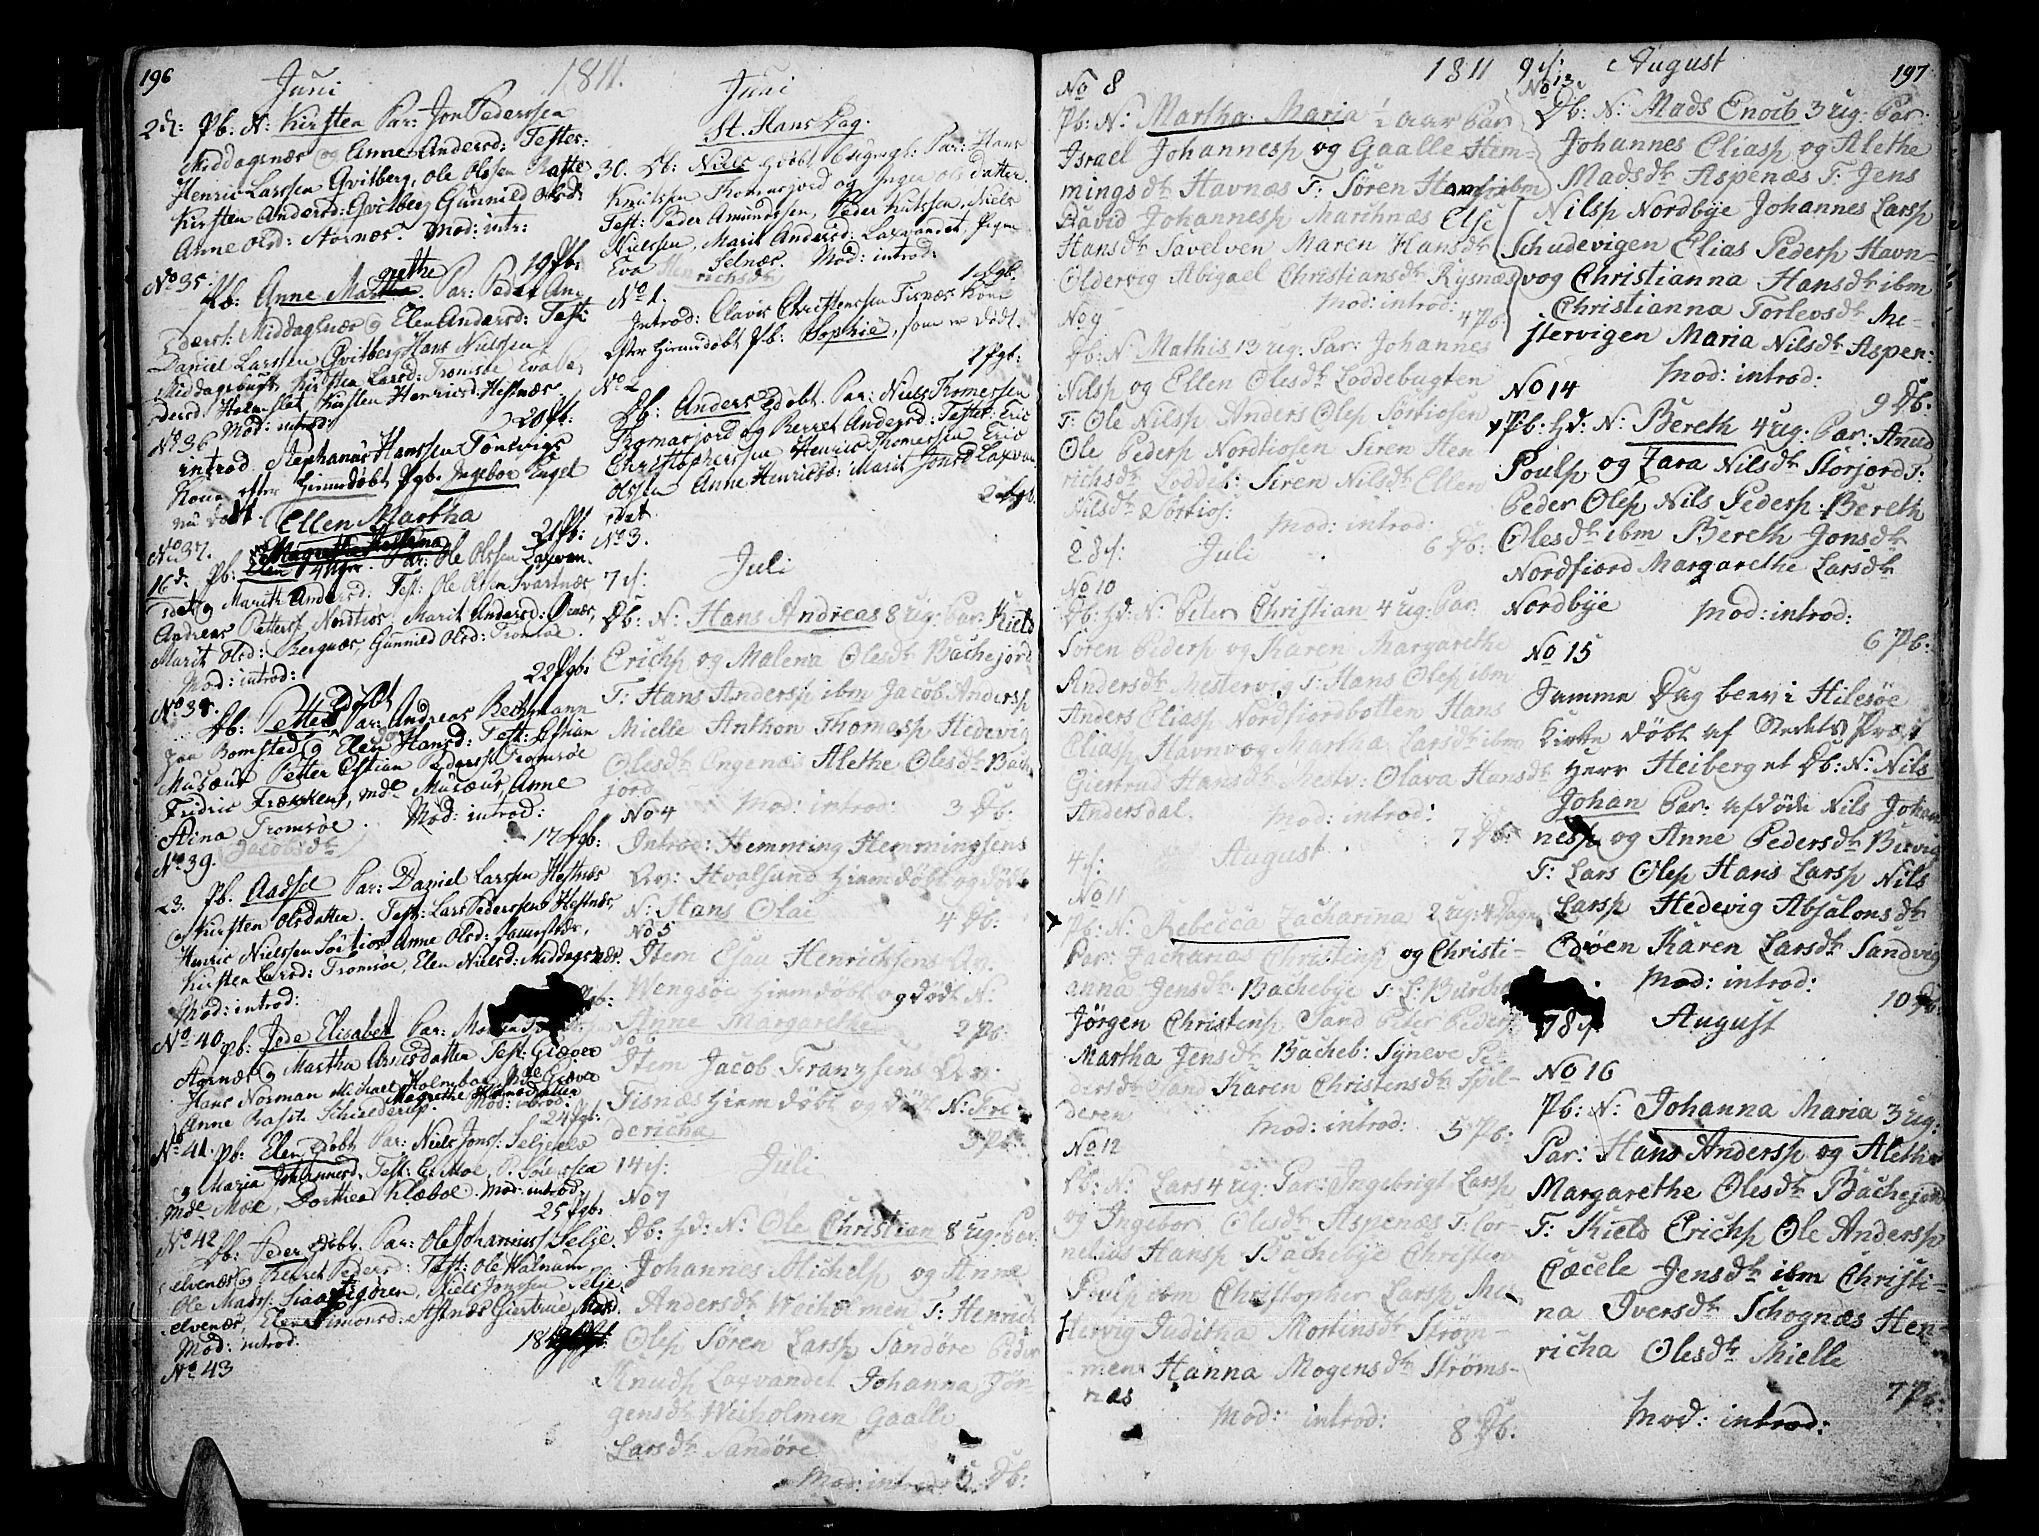 196
Juni
1811.
2d: Pb: N: Kirsten Par: Jon Pederssen
Middagsnæs og Anne Andersd: Tester:
Henric Larssen Qvitberg, Ole Olssen
Kirsten Andersd: Qvitberg Gunnild Olsd:
Anne Olsd: Stornæs. Mod: intr:
No 35. 19 Pb:
Pb: Anne Margrethe. Par: Peder An-
derss: Middagsnæs og Elen Andersd: Test:
Daniel Larssen Qvitberg Hans Nielssen
Middagsbugt, Kirsten Larsd: Tromsøe Eva
dersd Holmslet, Kirsten Henricsd: Hestnæs.
Mod: introd: 20 Pb:
No 36
introd. Stephanus Hanssen Tønsvigs
Kone efter hiemdøbt Pgb. Ingebor Engel
nu død.
Ellen Martha
No 37. 21 Pb:
16d: Pb: Elen Par: Ole Olssen Laxvan-
det og Marith Andersd: Test: Ole Olssen Svartnæs
Andreas Petterss. Nordkios, Marit Andersd:
Marit Olsd: Bergnæs, Gunnild Olsd: Tromsøe.
Mod: introd: 22 Pgb:
No 38.
Db: Petter Edøbt Par: Andreas
paa Bomsted og Elen Hansd: Test: Estian
Musæus Petter Estian Pederss. Tromsøe
Fridric Frækken, Mde Musæus, Anne
Stina Tromsøe. Mod: introd:
Jacobsdr 17 Pgb:
No 39.
23. Pb. Aadsel Par: Daniel Larssen Hestnæs
Kirsten Olsdatter. Test: Lars Pederssen Hestnæs,
Henric Nielssen Sørkios Anne Olsd:
Kirsten Larsd: Tromsøe, Elen Nielsd: Middagsnæs.
Mod: introd:
No 40. Pb: Jede Elisabet Par:
Agnæs og Martha Arnesdatter Test: Giæver
Hans Norman Michael Holmboe, Mde Giæver
Anne Schielderup. Magrethe
Mod: introd: 24 Pgb:
No 41. Pb: Elen Edøbt Par: Niels Jonss: Seljeelv
og Maria Johannesd. Test: Moe,
Mde Moe, Dorthea Klæboe Mod: introd.
25 Pgb:
No 42
Db: Peder Edøbt. Par: Ole Johannissen Selje-
elvenæs og Berret Pedersd: Test: Ole Walnum
Ole Madss: Niels Jonssen Selje-
elvenæs, Elen Simonsd: Giertrue Madsd.
Mod: introd: 18
No 43
Juni
St. Hans Dag.
30. Db: Niels Par: Hans
Knutssen Thomasjord og Inger Ols datter.
Test: Peder Amundssen, Peder Knutssen, Niels
Nielssen, Marit Andersd: Laxvandet, Pigen
Eva Henrichsdr Selnæs. Mod: introd:
No 1. 1 Pgb.
Introd: Clavis Christenssen Tisnæs Kone
efter hiemdøbt Pb: Sophie, som er død.
No 2 1 Pgb:
Db: Anders Edøbt. Par: Niels Thomessen
Tomasjord og Berret Andersd: Tester: Eric
Christopherssen Henric Thomessen Eric
Olssen Anne Henricsd: Marit Jonsd Laxvan-
det. 2 Pgb.
No 3.
7d: Juli
Db: N: Hans Andreas 8 ug: Par: Kield
Erichs. og Malena Olesdr Bachejord
T: Hans Anders. ibm Jacob Anderss.
Mielle Anthon Thomass. Hedevig
Olesdr Engenæs Alethe Olesdr Bache-
jord Mod: introd: 3 Db:
No 4
Introd: Hemming Hemmingsens
Qv: Hvalsund hiemdøbt og død
N: Hans Olai 4 Db:
No 5
Item Esau Henrichsens Qv.
Wengsøe hiemdøbt og død N.
Anne Margarethe 2 Pb:
No 6
Item Jacob Franzsens Qv:
Tisnæs hiemdøbt og død N: Fri-
dericha 3 Pb:
14d: Juli
No 7
Db: hd: N: Ole Christian 8 ug. Par:
Johannes Michels. og Anne
Andersdr Weiholmen T: Henrich
Oles. Søren Larss. Sandøre Peder
Knuds. Laxvandet Johanna Jør-
gensdr Weiholmen Gaalle
Larsdr Sandøre
Mod: introd: 5 Db:
1811
No 8
Pb: N: Martha Maria ½ aar Par
Israel Johanness. og Gaalle Hem-
mingsdr Havnæs T: Søren ibm
David Johanness. Marthnæs Else
Hansdr Savelven Maren Hansdr
Oldervig Abigael Christiansdr Rysnæs
Mod: introd: 4 Pb:
No 9
Db: N Mathis 13 ug. Par: Johannes
Nilss. og Ellen Olesdr Loddebugten
T: Ole Nilss. Anders Oles. Sørkiosen
Ole Peders. Nordkiosen Siren Hen-
richsdr Loddeb: Siren Nilsdr Ellen
Nilsdr Sørkios: Mod: introd:
28d: Juli 6 Db:
No 10
Db: hd: N: Peter Christian 4 ug. Par:
Søren Peders. og Karen Margarethe
Andersdr Mestervig T: Hans Oles. ibm
Anders Eliass. Nordfiordbotten Hans
Eliass. Havnvog Martha Larsdr ibm
Giertrud Hansdr Mestv: Olava Hansdr
Andersdal. Mod: introd:
4d: August 7 Db:
No 11
Pb: N: Rebecca Zacharina 2 ug: 4 Dage
Par: Zacharias Christens. og Christi-
anna Jensdr Bachebye T:
Jørgen Christens. Sand Peter Peders.
Martha Jensdr Bacheb: Syneve Pe-
dersdr Sand Karen Christensdr Spil-
deren Mod: introd: 5 Pb:
No 12
Db: N: Lars 4 ug. Par: Ingebrigt Larss.
og Ingebor Olesdr Aspenæs T: Cor-
nelius Hanss. Bachebye Christen
Pouls. ibm Christopher Larss. Me-
stervig Juditha Mortensdr Strøm-
men Hanna Mogensdr Strøms-
næs
Mod: introd: 8 Db.
9d: August
197
No 13.
Db: N: Mads Enoch 3 ug: Par:
Johannes Eliass. og Alethe
Madsdr Aspenæs T: Jens
Nilss. Nordbye Johannes Larss.
Schudevigen Elias Peders. Havn-
vog Christianna Hansdr ibm
Christianna Torlevsdr Me-
stervigen Maria Nilsdr Aspen:
Mod: introd:
No 14 9 Db.
Pb: hd: N: Bereth 4 ug. Par: Knud
Pouls. og Zara Nilsdr Storjord T:
Peder Oles. Nils Peders. Bereth
Olesdr ibm Bereth Jonsdr
Nordfiord Margarethe Larsdr
Nordbye Mod: introd:
No 15 6 Pb:
Samme Dag blev i Hilesøe
Kirke døbt af Stedets Præst
Herr Heiberg et Db: N: Nils
Johan Par: afdøde Nils Johan-
ness. og Anne Pedersdr
T: Lars Oles. Hans Larss. Nils
Larss. Hedevig Absalonsdr
Edøen Karen Larsdr Sandvig
Mod: introd:
10 Db.
18d August
No 16
Pb: N: Johanna Maria 3 ug:
Par: Hans Anderss. og Alethe
Margarethe Olesdr Bachejord
T: Kield Erichs. Ole Anderss.
Cæcele Jensdr ibm Christi-
na Iversdr Schognæs Hen-
richa Olesdr Mielle
7 Pb:
Mod: introd: